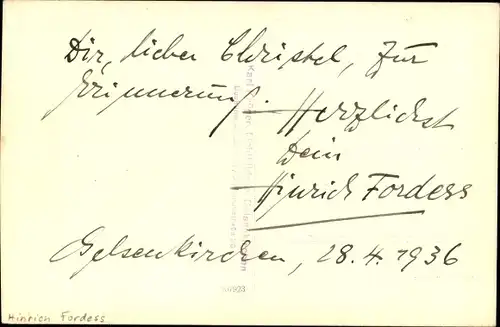 Dir, lieber Christel, zur
Erinnerung.
Herzlichst
Dein
Hinrich Fordess
Gelsenkirchen, 28.4.1936
Hinrich Fordess